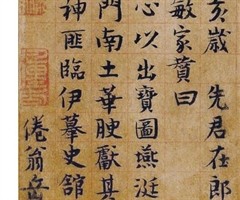 亥歲 先君在郎
敏家贊曰
心以出寶圖燕
門南土華腴獻其
神匪臨伊摹史館
倦翁岳